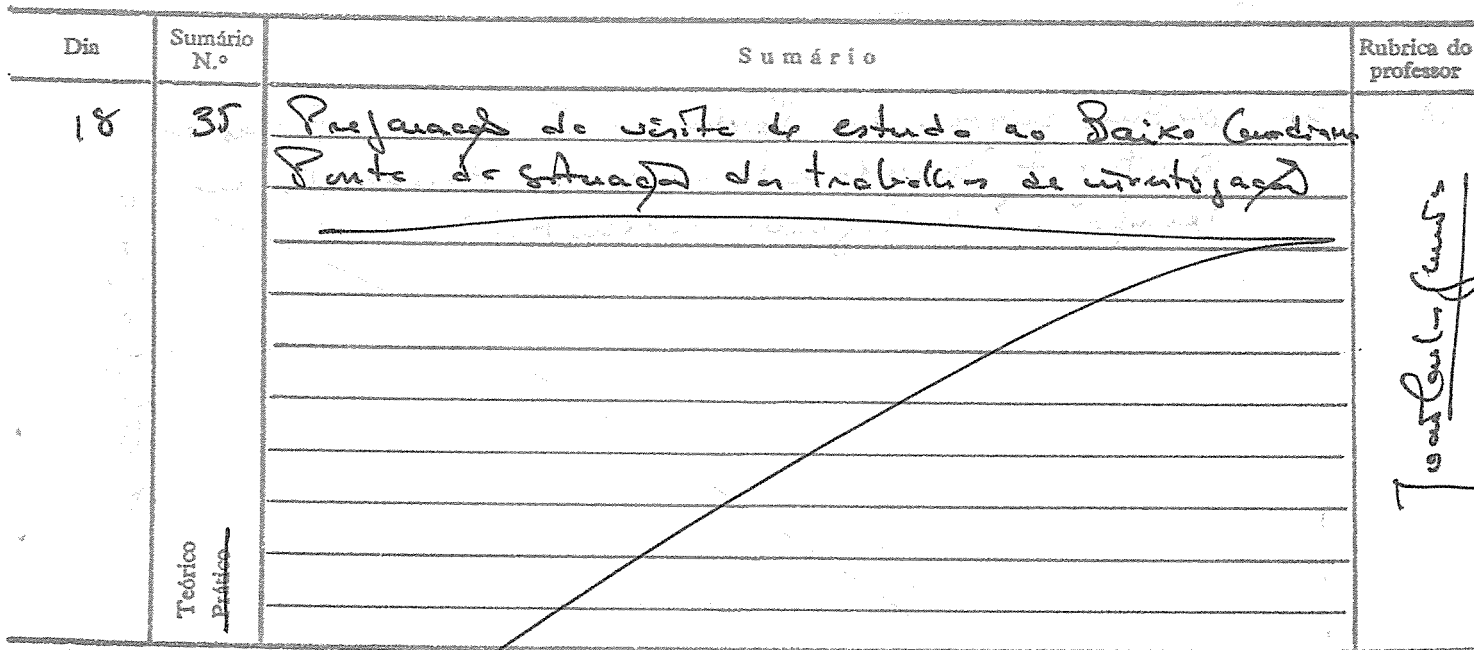 Dia
Sumário N.º
Sumário
Rubrica do professor
18
35
Preparação da visita de estudo ao Baixo Guadiana
Ponto da situação dos trabalhos de investigação
Teórico
Prático